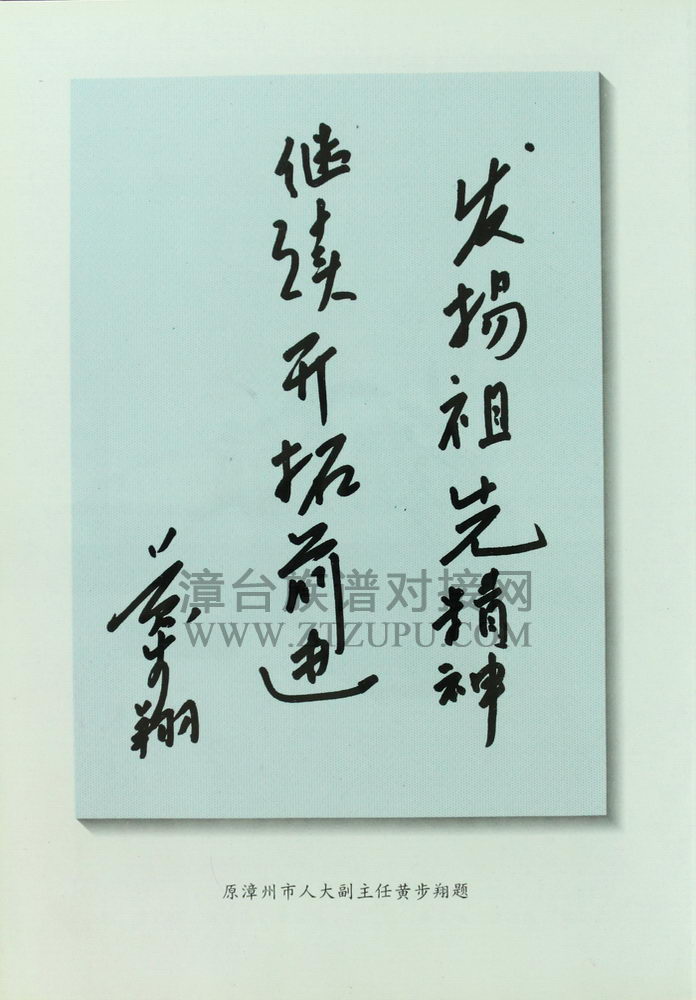 发扬祖先精神
继续开拓前进
黄步翔
漳台族谱对接网
WWW.ZTZUPU.COM
原漳州市人大副主任黄步翔题